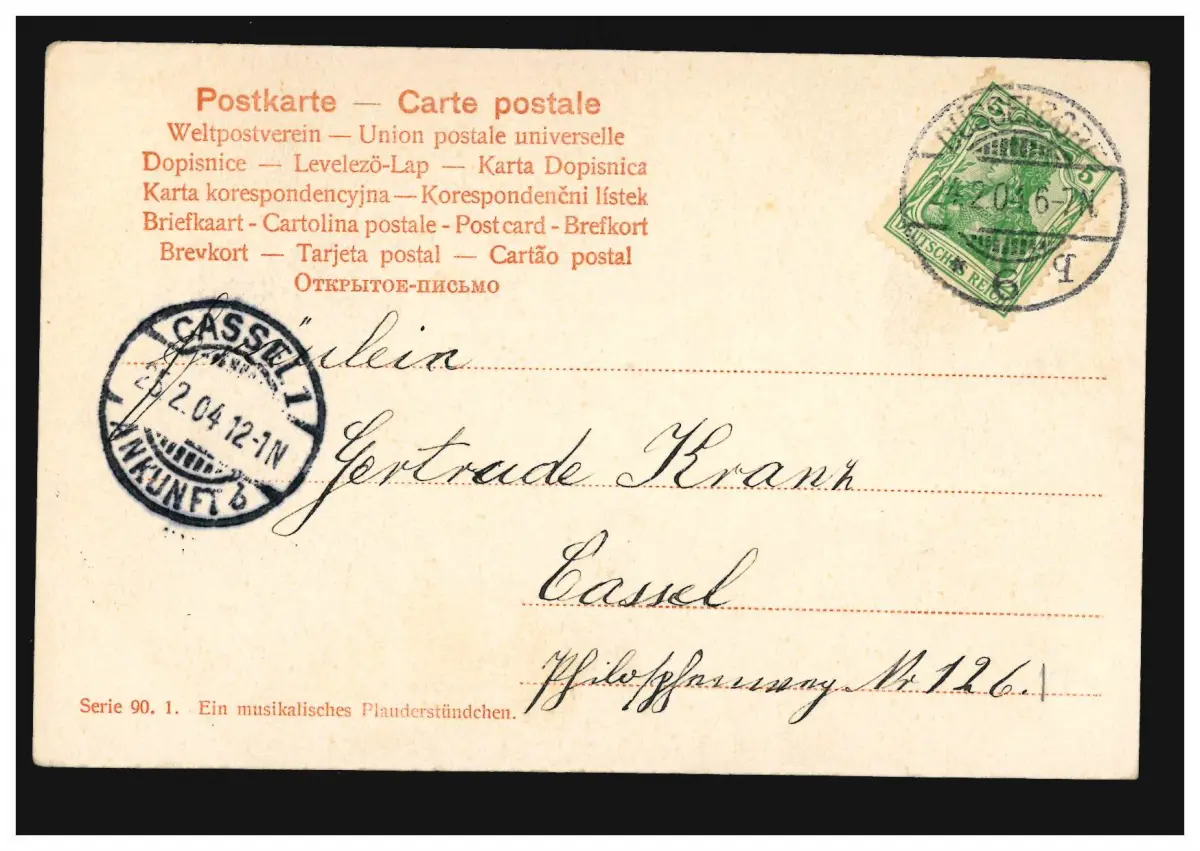 Postkarte — Carte postale
Weltpostverein — Union postale universelle
Dopisnice — Levelezö-Lap — Karta Dopisnica
Karta korespondencyjna — Korespondenčni lístek
Briefkaart - Cartolina postale - Post card - Brefkort
Brevkort — Tarjeta postal — Cartão postal
Открытое-письмо
DÜSSELDORF
5
24.2.04 6-7N
DEUTSCHES REICH
* 6 b
CASSEL 1
25.2.04 12-1N
ANKUNFT b
Fräulein
Gertrude Kranz
Cassel
Philosophenweg Nr 126.
Serie 90. 1. Ein musikalisches Plauderstündchen.